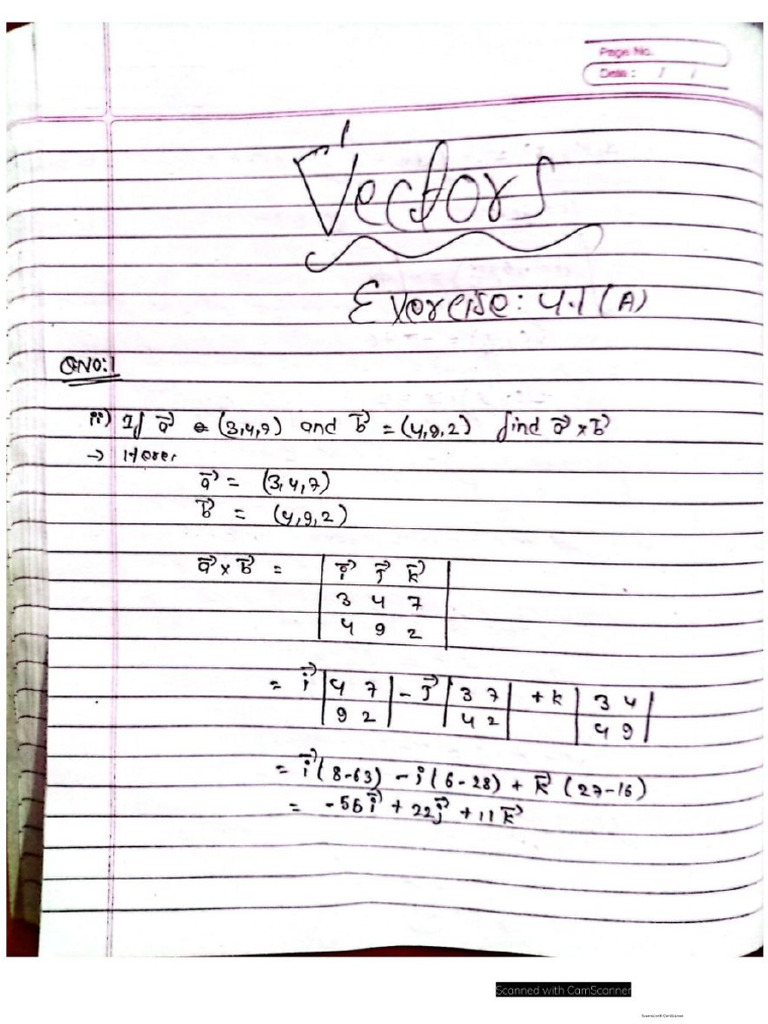 Page No.
Date: / /
Vectors
Exercise: 4.1 (A)
QNO:1
ii) If a⃗ = (3,4,7) and b⃗ = (4,9,2) find a⃗ × b⃗
→ Here,
a⃗ = (3,4,7)
b⃗ = (4,9,2)
a⃗ × b⃗ = | i⃗ j⃗ k⃗ |
| 3 4 7 |
| 4 9 2 |
= i⃗ | 4 7 | - j⃗ | 3 7 | + k | 3 4 |
| 9 2 | | 4 2 | | 4 9 |
= i⃗ (8-63) - j (6-28) + k⃗ (27-16)
= -56 i⃗ + 22 j⃗ + 11 k⃗
Scanned with CamScanner
Scanned with CamScanner